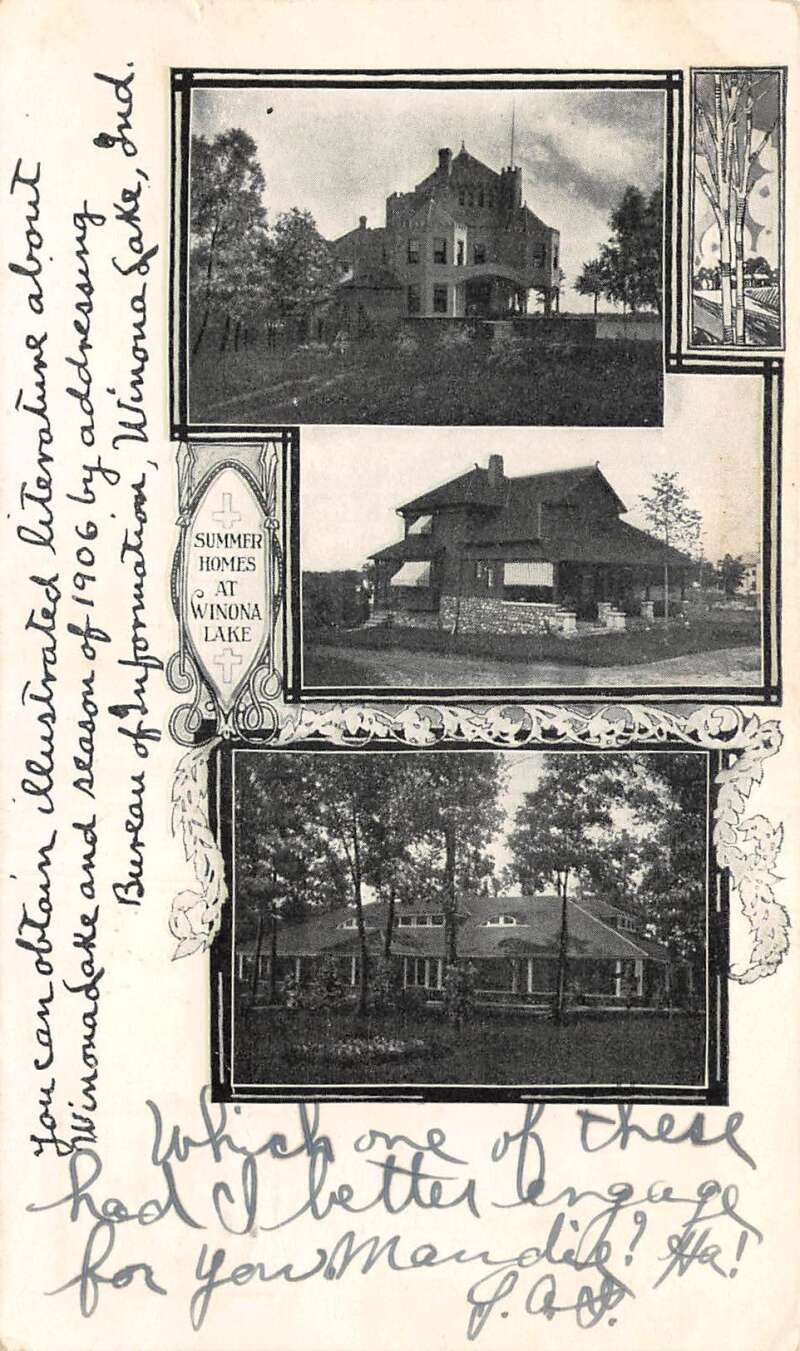 You can obtain illustrated literature about
Winona Lake and season of 1906 by addressing
Bureau of Information, Winona Lake, Ind.
SUMMER
HOMES
AT
WINONA
LAKE
Which one of these
had I better engage
for you Maudie? Ha!